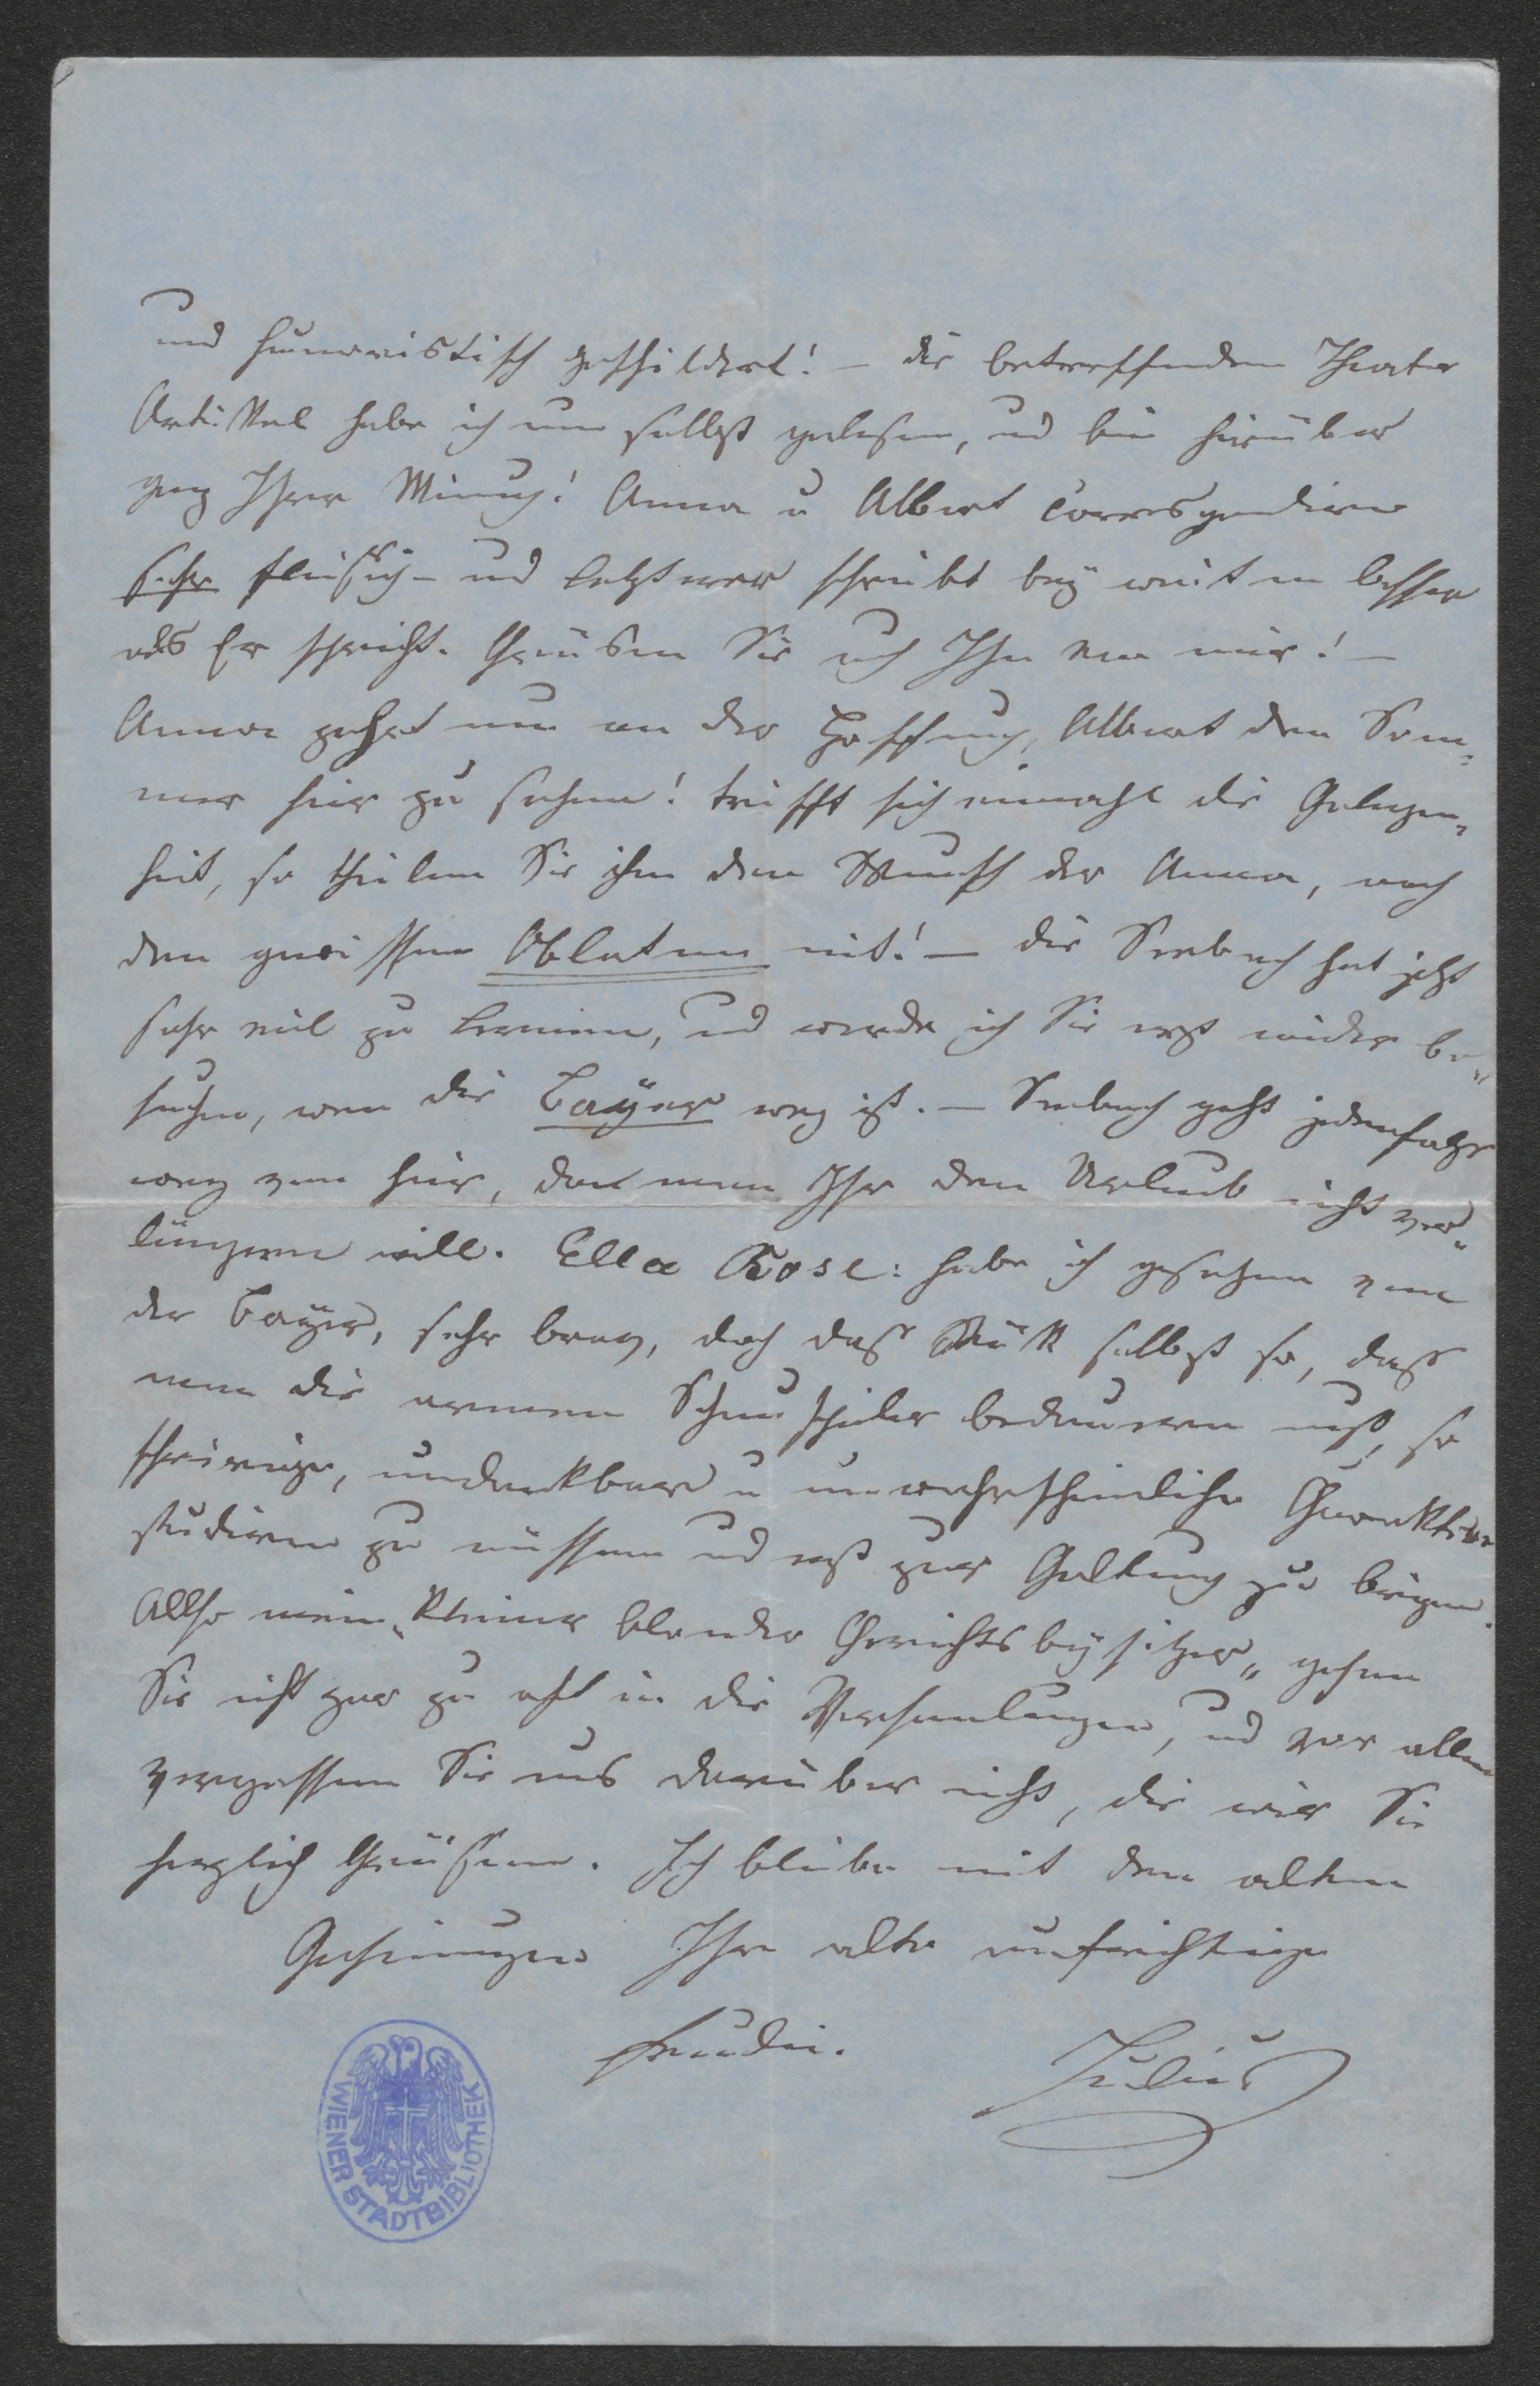 und humoristisch geschildert! – die betreffenden Theater
Artikkel habe ich nun selbst gelesen, und bin hierüber
ganz Ihrer Meinung! Anna u Albert correspondiren
sehr fleissig – und letzterer schreibt bey weitem besser
als Er spricht. Grüssen Sie auch Ihn von mir! –
Anna zehrt nun an der Hoffnung, Albert den Som„
mer hier zu sehen! trifft sich einmahl die Gelegen„
heit, so theilen Sie ihm den Wunsch der Anna, nach
den gewissen Oblaten mit! – die Seebach hat jetzt
sehr viel zu lernen, und werde ich Sie erst wieder be„
suchen, wen die Bayer weg ist. – Seebach geht jedenfalls
weg von hier, da man Ihr den Urlaub nicht ver„
längern will. Ella Rose: habe ich gesehen von
der Bayer, sehr brav, doch dass Stük selbst so, dass
man die armen Schauspieler bedauern muß, so
schwierige, undankbare u unwahrscheinliche Charaktere
studiren zu müssen und erst zur Geltung zu bringen.
Allso mein „kleiner blonder Gerichtsbeysitzer„ gehen
Sie nicht gar zu oft in die Versamlungen, und vor allem
vergessen Sie uns darüber nicht, die wir Sie
herzlich Grüssen. Ich bleibe mit den alten
Gesinnungen Ihre alte aufrichtige
freundin.
Julius
WIENER STADTBIBLIOTHEK